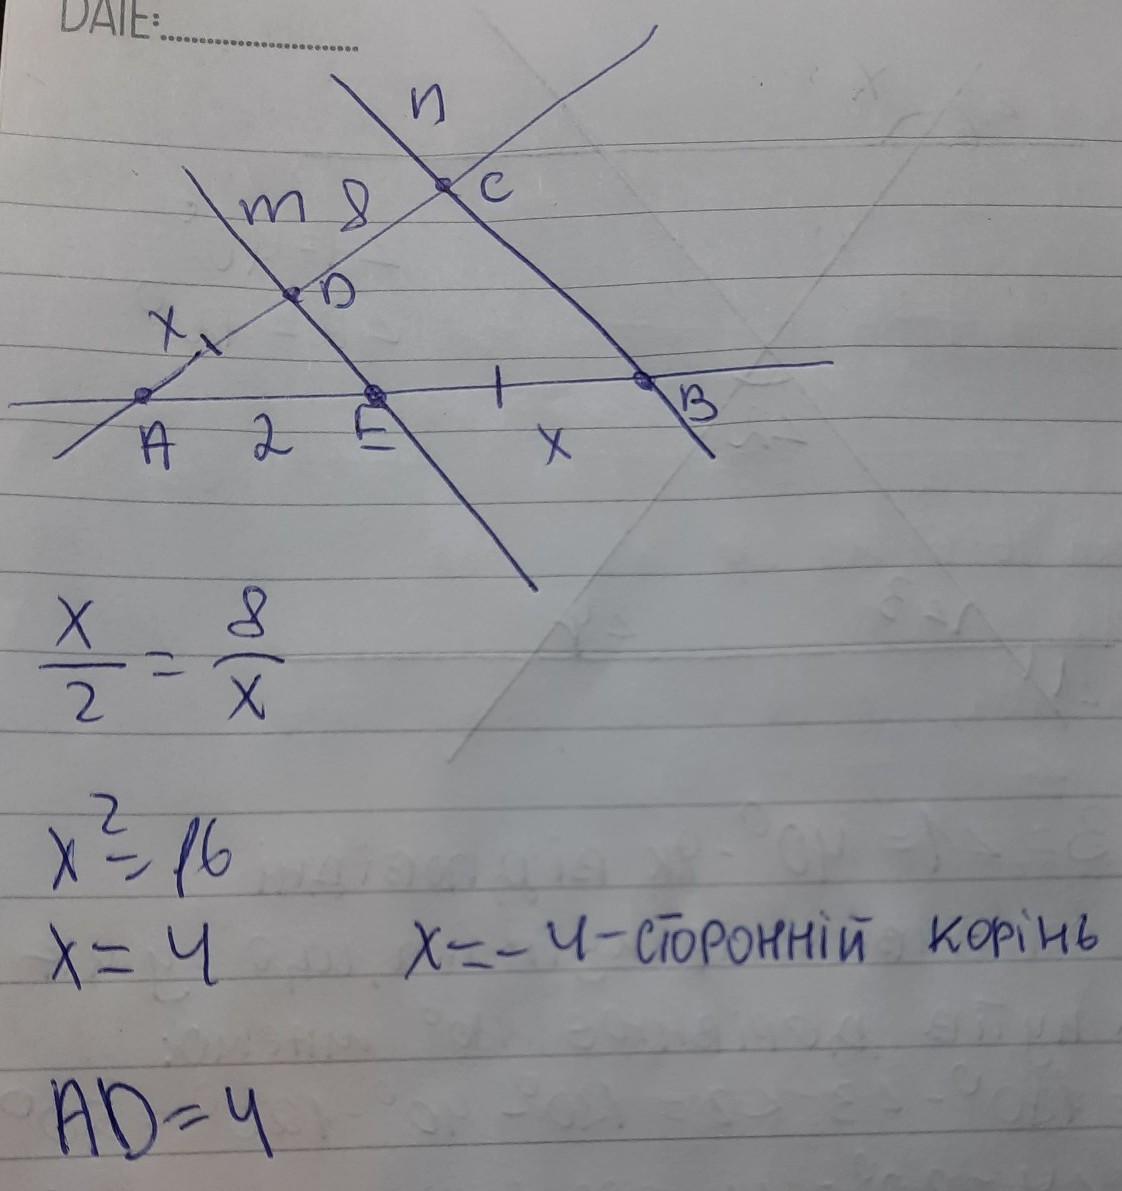 DATE:
n
m 8 C
x D
A 2 E x B
x/2 = 8/x
x² = 16
x = 4 x = -4 - сторонній корінь
AD = 4